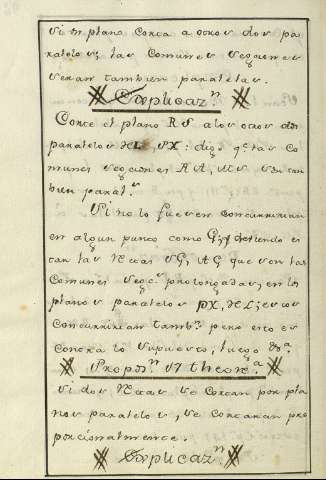 Si un plano corta a otros dos pa
ralelos, las comunes secciones
seran tambien paralelas.
Explicaz.n
Corte el plano RS a los otros dos
paralelos PX: digo q.e las co
munes secciones RA, son tam
bien paral.s
Si no lo fuesen concurririan
en algun punto como G; y
tan las rectas SG, AG que son las
comunes secc.s prolongadas, en los
planos paralelos PX, estos
concurririan tamb.n pero esto es
contra lo supuesto, luego &.a
Propos.n VI theor.a
Si dos rectas se cortan por pla
nos paralelos, se cortaran pro
porcionalmente.
Explicaz.n